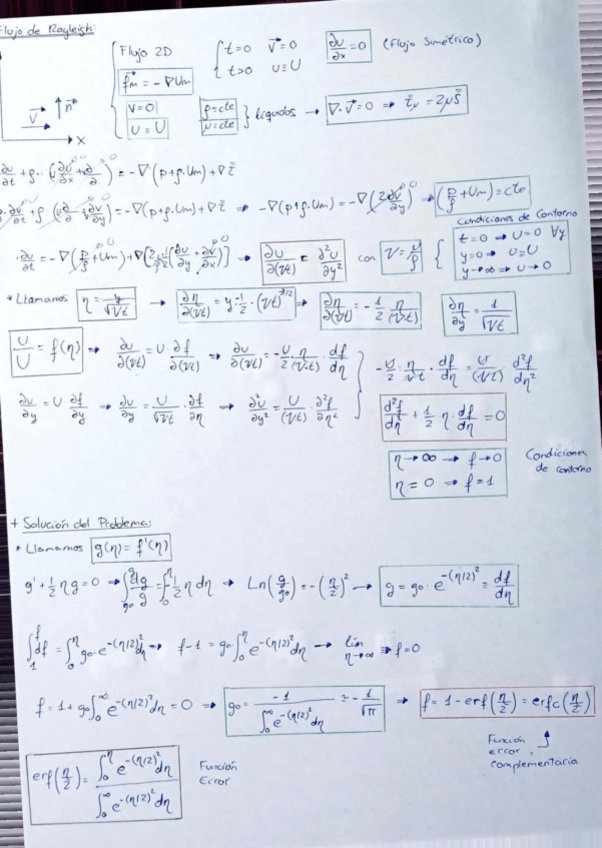 Flujo de Rayleigh:
Flujo 2D { t=0 v⃗=0 ∂u/∂x = 0 (Flujo Simétrico)
f⃗m = -∇Um { t>0 u≡U
v=0 ρ=cte } líquidos → ∇·v⃗=0 ⇒ τ̿ = 2μS̿
U≡U μ=cte
v⃗ n⃗
x
= -∇(p+ρ·Um)+∇τ̿
= -∇(p+ρ·Um)+∇τ̿ ⇒ -∇(p+ρ·Um) = -∇(2∂v/∂y)⁰ → (p/ρ+Um)=cte
Condiciones de Contorno
∂u/∂(νt) = ∂²u/∂y² con ν = μ/ρ { t=0 → u=0 ∀y
y=0 → u=U
y→∞ → u→0
* Llamamos η = y/√νt → ∂η/∂(νt) = y·-½·(νt)^-3/2 → ∂η/∂(νt) = -½ η/(νt) ∂η/∂y = 1/√νt
u/U = f(η) → ∂u/∂(νt) = U·∂f/∂(νt) → ∂u/∂(νt) = -U/2 η/(νt) · df/dη } -U/2 · η/νt · df/dη = U/(νt) · d²f/dη²
∂u/∂y = U·∂f/∂y → ∂u/∂y = U/√νt · ∂f/∂η → ∂²u/∂y² = U/(νt) · ∂²f/∂η² d²f/dη² + ½ η · df/dη = 0
η→∞ → f→0 Condiciones
η=0 → f=1 de contorno
+ Solución del Problema:
* Llamamos g(η)=f'(η)
g' + ½ηg = 0 → ∫dg/g = ∫-½ η dη → Ln(g/g₀) = -(η/2)² → g = g₀·e^-(η/2)² = df/dη
∫df = ∫g₀·e^-(η/2)² dη → f-1 = g₀∫e^-(η/2)² dη → lím η→∞ ⇒ f=0
f = 1+g₀∫₀^∞ e^-(η/2)² dη = 0 → g₀ = -1/∫₀^∞ e^-(η/2)² dη = -1/√π → f = 1 - erf(η/2) = erfc(η/2)
Función
error
complementaria
erf(η/2) = ∫₀^η e^-(η/2)² dη / ∫₀^∞ e^-(η/2)² dη Función
Error